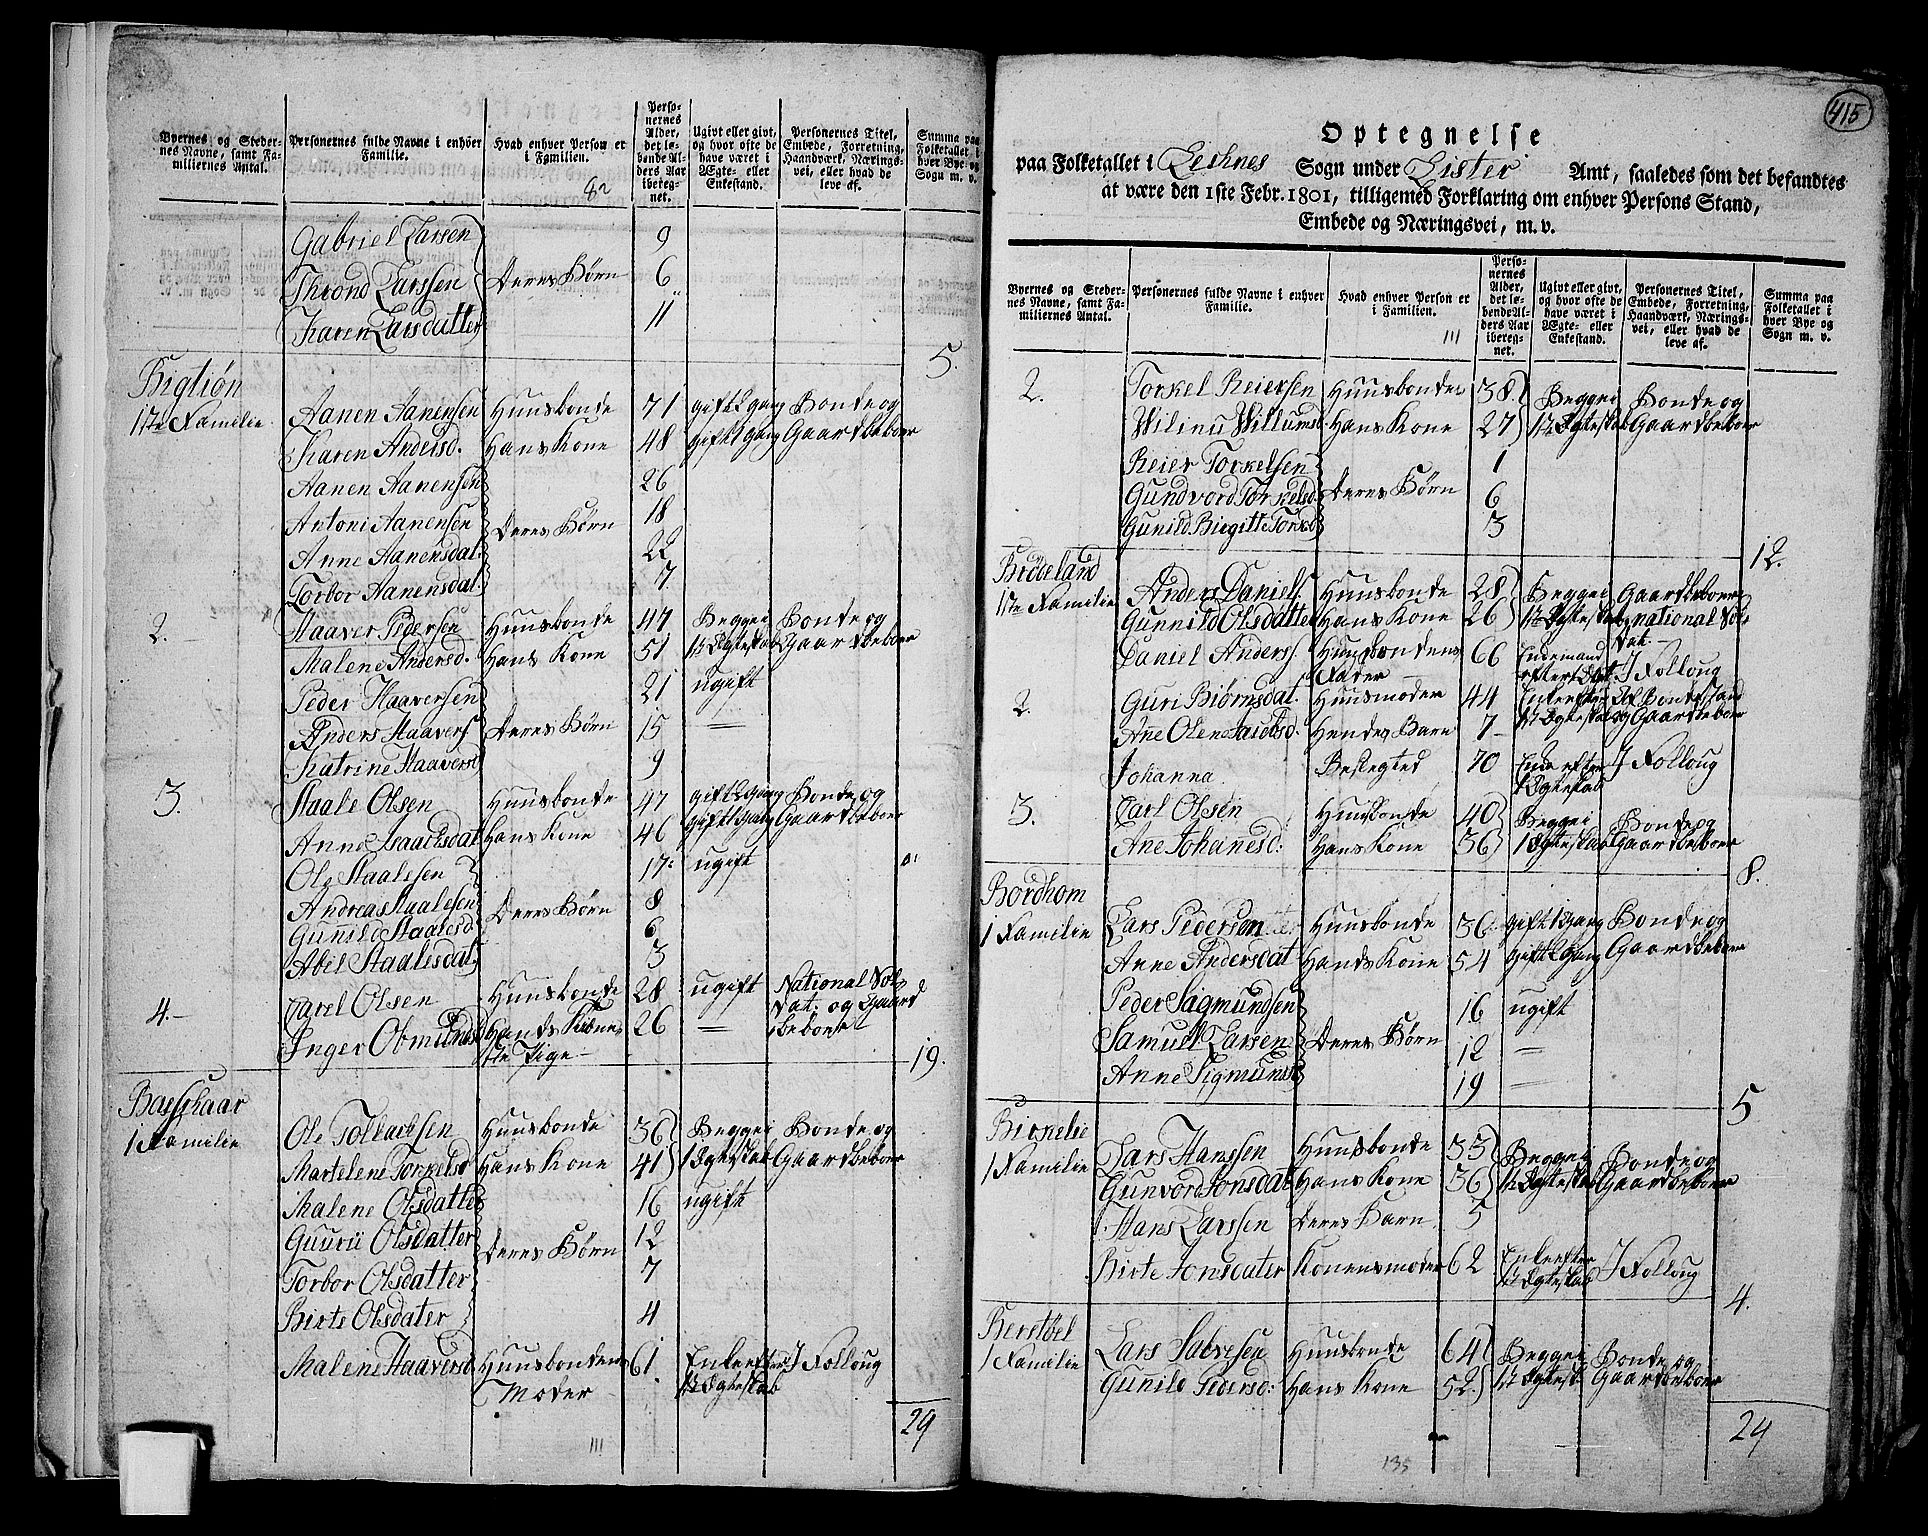 Byernes og Steder-
nes Navne, samt Fa-
miliernes Antal.
Personernes fulde Navne i enhver
Familie.
Hvad enhver Person er
i Familien.
82
Perso-
nernes
Alder,
det le-
bende Al-
ders Aar
iberegnet.
Ugivt eller givt,
og hvor ofte de
have været i
Ægte- eller
Enkestand.
Personernes Titel,
Embede, Forretning,
Haandværk, Nærings-
vei, eller hvad de
leve af.
Summa paa
Folketallet i
hver Bye og
Sogn m. v.
Gabriel Larsen 9
Thrond Larssen Deres Børn 6
Karen Larsdatter 11
5.
Bigtiøn
1ste Familie Aanen Aanensen Huusbonde 71 gift 2 gang Bonde og
Karen Andersd. Hans Kone 48 gift 1 gang Gaardbeboer
Aanen Aanensen 26
Antoni Aanensen Deres Børn 18
Anne Aanensdat. 22
Torbor Aanensdat. 7
2. Haaver Pedersen Huusbonde 47 Begge i Bonde og
Malene Andersd. Hans Kone 51 1t Ægteskab Gaardbeboer
Peder Haaversen 21 ugift
Anders Haavers Deres Børn 15 —
Katrine Haaversd 9
3. Staale Olsen Huusbonde 47 gift 2 gang Bonde og
Anne Isaachsdat Hans Kone 46 gift 1 gang Gaardbeboer
Ole Staalesen 17 ugift
Andreas Staalesen Deres Børn 8
Gunild Staalesd 6
Abil Staalesdat 3
4. Carel Olsen Huusbonde 28 ugift National Sol-
dat og Gaard
Inger Obmunds Hands Kone 26 — beboer
19.
1 Familie Ole Tollachsen Huusbonde 36 Begge i Bonde og
Martelene Torkelsd Hans Kone 41 1 Ægteskab Gaardbeboer
Malene Olsdatter 16 ugift
Guurii Olsdatter Deres Børn 12
Torbor Olsdatter 7
Birte Olsdater 4
Malene Haaversd Huusbondens 61 Enke efter I Folloug
Moder 1t Ægteskab
29
111
415
Optegnelse
paa Folketallet i Lechnes Sogn under Lister Amt, saaledes som det befandtes
at være den 1ste Febr. 1801, tilligemed Forklaring om enhver Persons Stand,
Embede og Næringsvei, m. v.
Byernes og Steder-
nes Navne, samt Fa-
miliernes Antal.
Personernes fulde Navne i enhver
Familie.
Hvad enhver Person er
i Familien.
111
Perso-
nernes
Alder,
det le-
bende Al-
ders Aar
ibereg-
net.
Ugivt eller givt,
og hvor ofte de
have været i
Ægte- eller
Enkestand.
Personernes Titel,
Embede, Forretning,
Haandværk, Nærings-
vei, eller hvad de
leve af.
Summa paa
Folketallet i
hver Bye og
Sogn m. v.
2. Torkel Reiersen Huusbonde 38 Begge i Bonde og
Willumsd. Hans Kone 27 1te Ægteskab Gaardbeboer
Reier Torkelsen 1
Gundvord Torkelsd. Deres Børn 6
Gunild Birgitte Torksd 3
12.
Brodeland
1ste Familie Anders Daniels. Huusbonde 28 Begge i Gaardbeboer
Gunnild Olsdatter Hans Kone 26 1te Ægteskab og national Sol-
dat
Daniel Anders. Huusbondens 66 Enkemand
Fader efter I Folloug
2. Guri Biørnsdat. Huusmoder 44 Enke efter Af Bondestand
Ane Olene Hendes Barn 7 1t Ægteskab og Gaardbeboer
Johanna Beslegted 70 Enke efter I Folloug
1 Ægteskab
3. Carl Olsen Huusbonde 40 Begge i Bonde og
Ane Johanesd: Hans Kone 36 1 Ægteskab Gaardbeboer
8.
Bordhom
1 Familie Lars Pedersen Huusbonde 36 gift 1 gang Bonde og
Anne Andersdat Hands Kone 54 gift 2 gang Gaardbeboer
Peder Sigmundsen 16 ugift
Samuel Larsen Deres Børn 12 —
Anne Sigmunds 19 —
5
Birkelie
1 Familie Lars Hanssen Huusbonde 33 Begge i Bonde og
Gunvord Jonsdat Hans Kone 36 1t Ægteskab Gaardbeboer
Hans Larssen Deres Barn 5
Birte Jonsdater Konens moder 62 Enke efter I Folloug
1t Ægteskab
4.
Berstøel
1 Familie Lars Salvesen Huusbonde 64 Begge i Bonde og
Gunild Pedersd: Hans Kone 52 1t Ægteskab Gaardbeboer
24
135